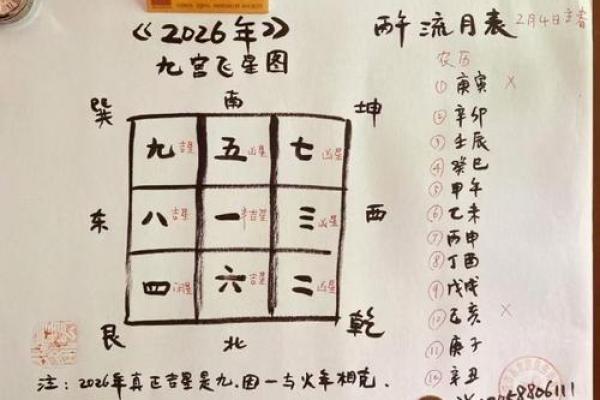 《2026年》
九宫飞星图
丙午流月表 2月4日立春
巽 南 坤
九吉星 五凶星 七凶星
东 八吉星 一半吉星 三凶星 西
四 六吉星 二凶星
艮 北 乾
注：2026年真正吉星是九.因一与火年相克.
农历
① 庚寅 ×
② 辛卯
③ 壬辰
④ 癸巳
⑤ 甲午
⑥ 乙未
⑦ 丙申
⑧ 丁酉
⑨ 戊戌
⑩ 己亥 ×
⑪ 庚子
⑫ 辛丑
58806111